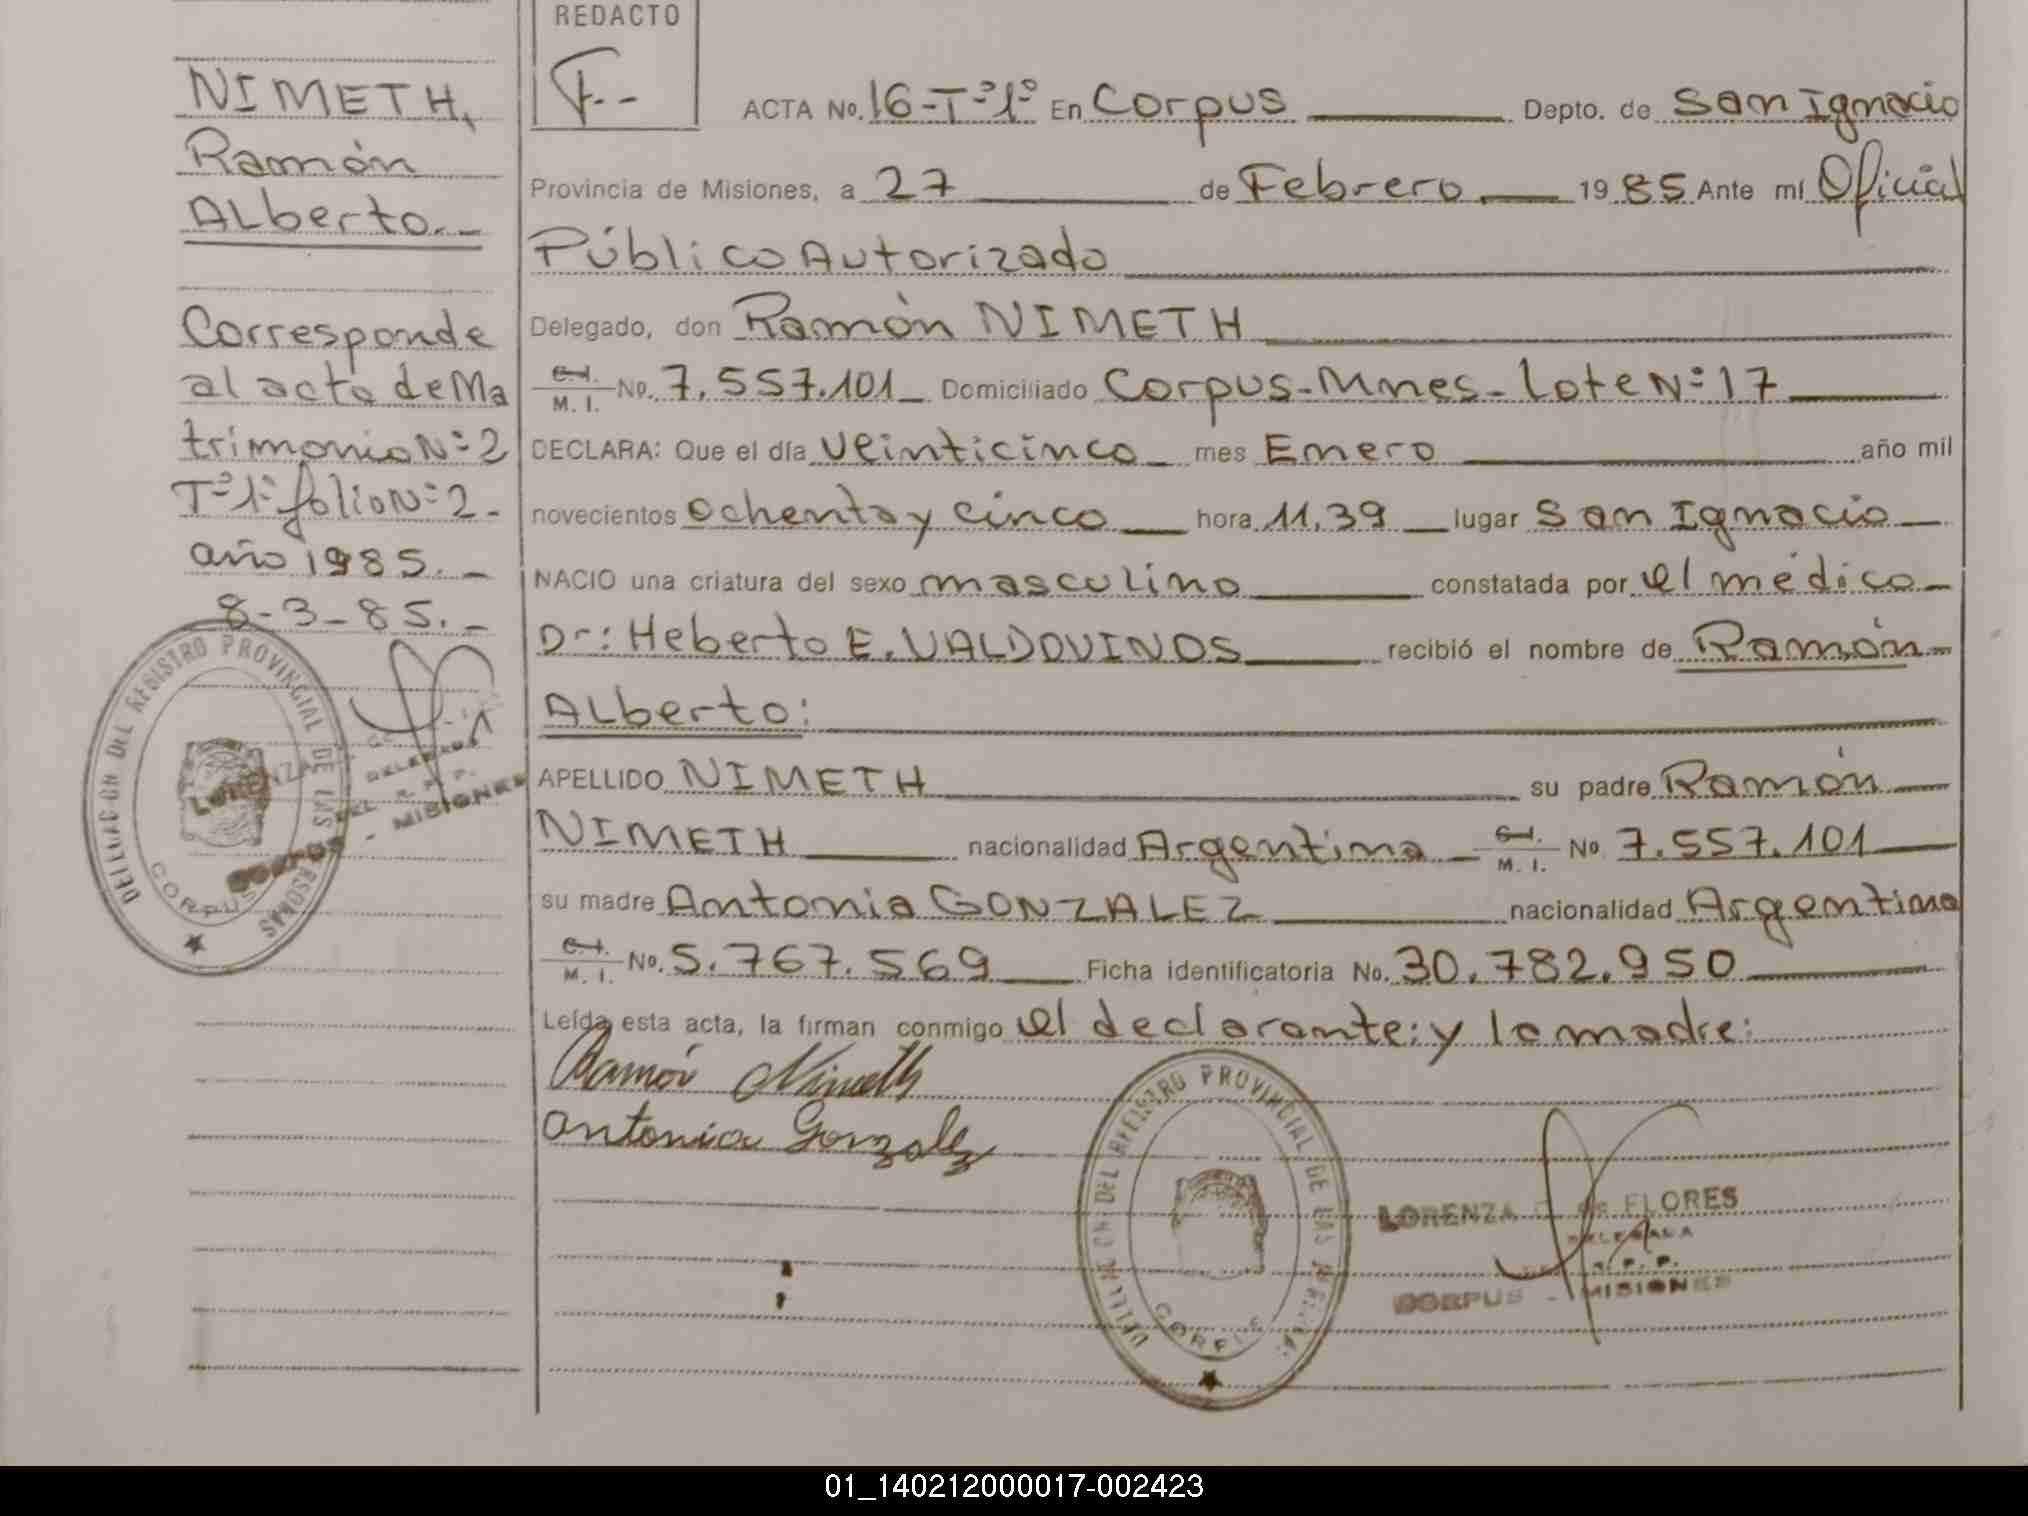 REDACTO
NIMETH,
Ramón
ALberto.-
Corresponde
al acta de Ma
trimonio Nº 2
Tº 1º folio Nº 2-
año 1985.-
8-3-85.-
DEL REGISTRO PROVINCIAL DE LAS PERSONAS
CORPUS
LORENZA
DELEGADA
R. P. P.
CORPUS - MISIONES
ACTA No. 16-Tº1º En Corpus Depto. de San Ignacio
Provincia de Misiones, a 27 de Febrero 1985 Ante mí Oficial
Público Autorizado
Delegado, don Ramón NIMETH
C.I. M. I. No. 7.557.101 Domiciliado Corpus-Mnes-Lote Nº 17
DECLARA: Que el día veinticinco mes Enero año mil
novecientos ochenta y cinco hora 11,39 lugar San Ignacio
NACIO una criatura del sexo masculino constatada por el médico
Dr: Heberto E. VALDOVINOS recibió el nombre de Ramón
ALberto:
APELLIDO NIMETH su padre Ramón
NIMETH nacionalidad Argentina C.I. M. I. No 7.557.101
su madre Antonia GONZALEZ nacionalidad Argentina
C.I. M. I. No. 5.767.569 Ficha identificatoria No. 30.782.950
Leída esta acta, la firman conmigo el declarante: y la madre:
Ramón Nimeth
Antonia Gonzalez
DEL REGISTRO PROVINCIAL DE LAS
LORENZA de FLORES
DELEGADA
R. P. P.
CORPUS - MISIONES
01_140212000017-002423